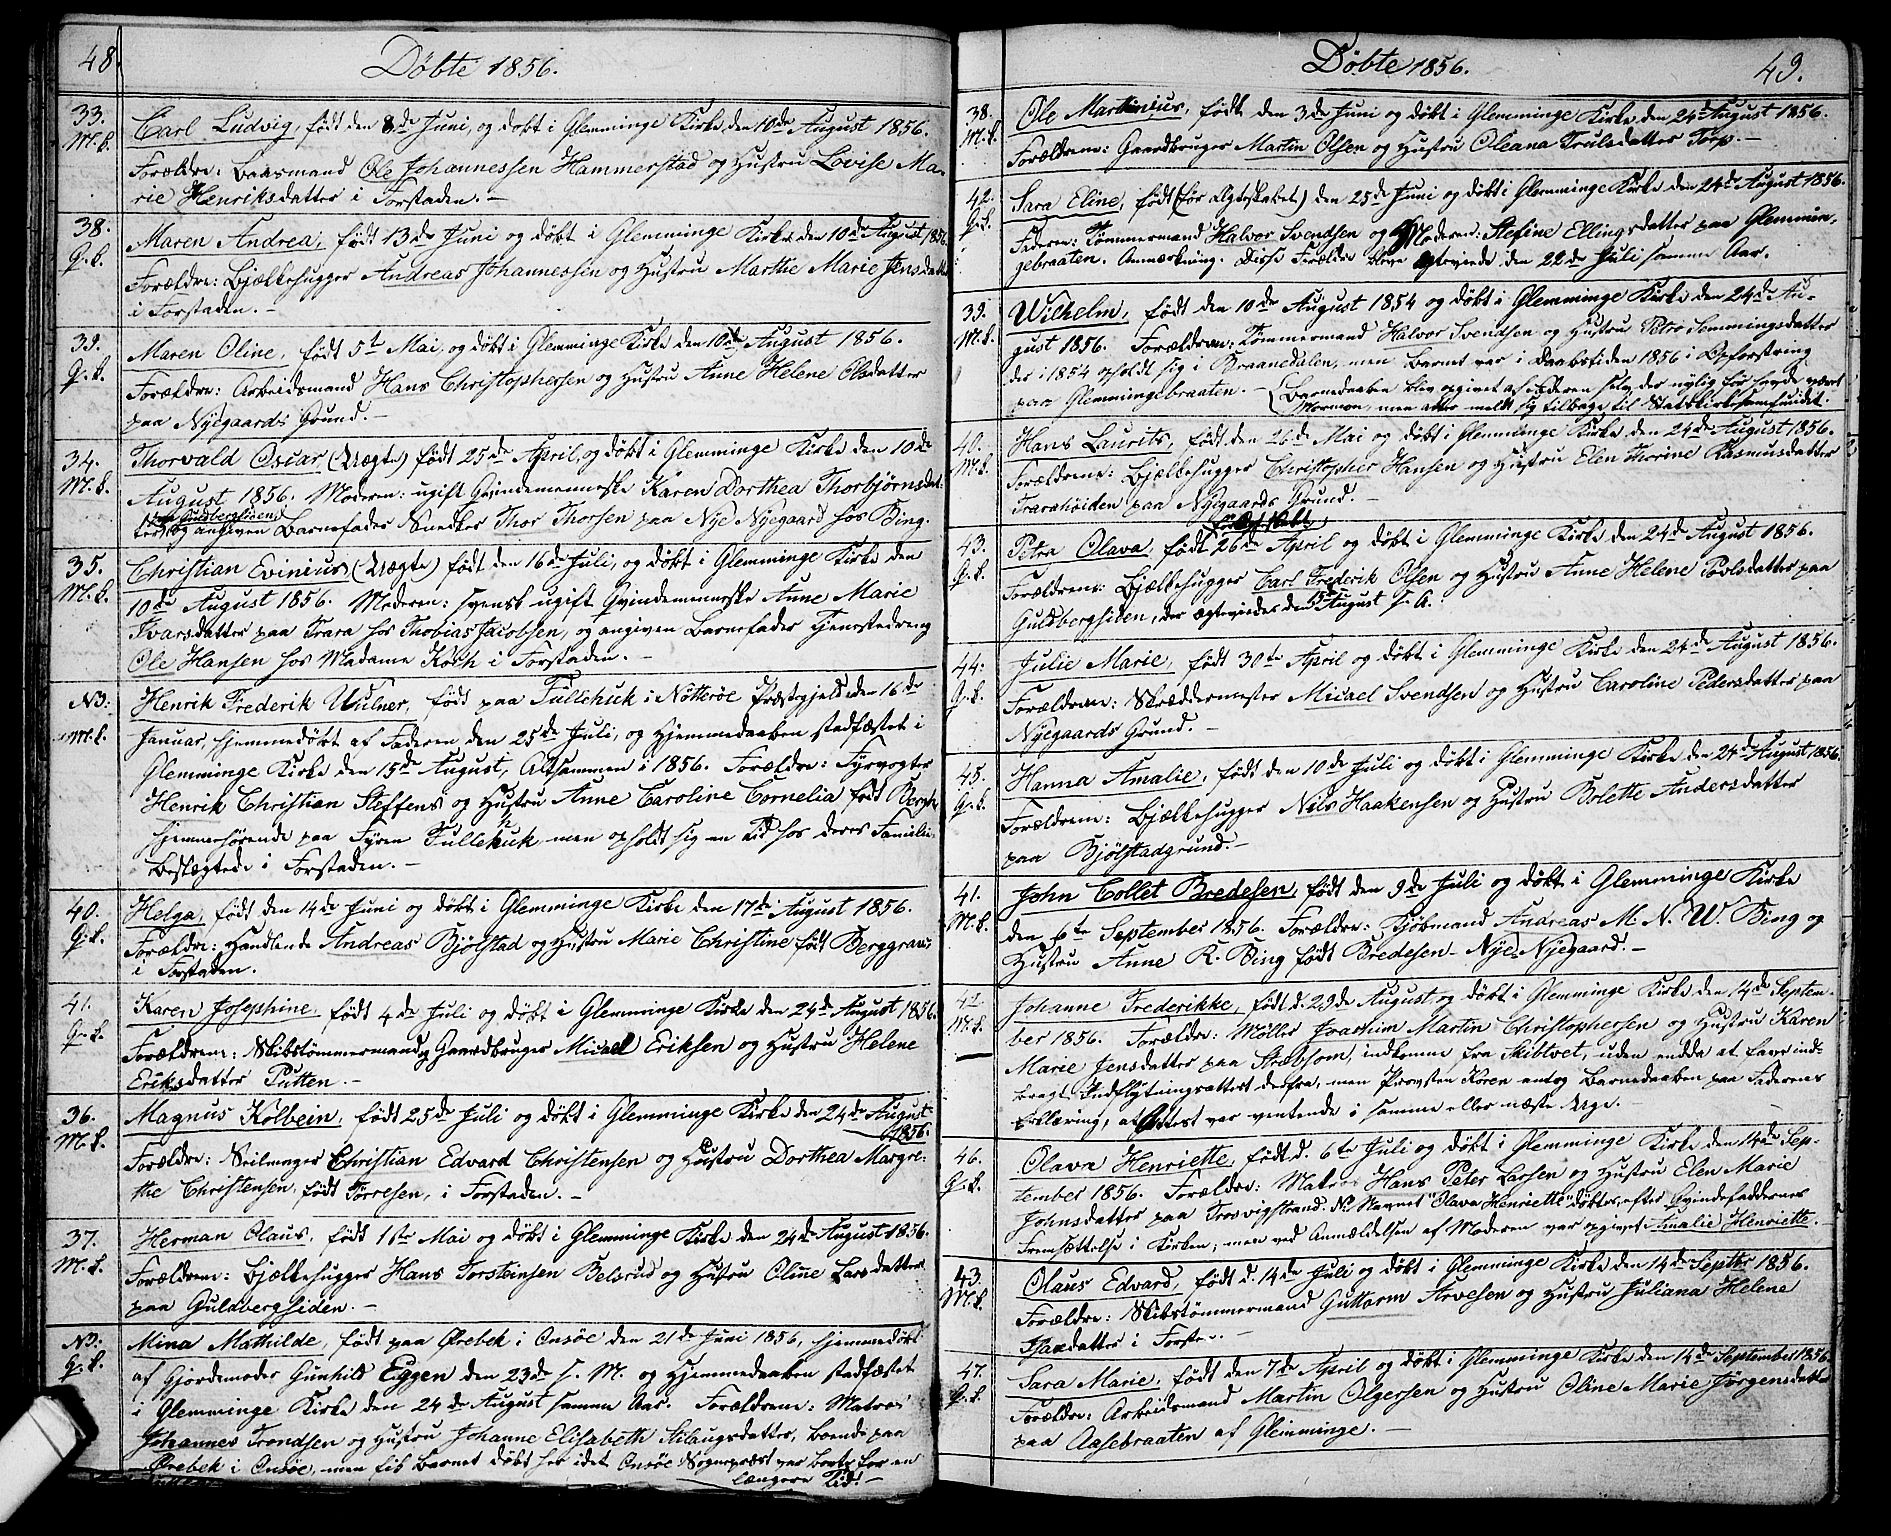 48.
Døbte 1856.
33.
M.k.
Carl Ludvig, født den 8de Juni, og døbt i Glemminge Kirke den 10de August 1856.
Forældre: Baasmand Ole Johannessen Hammerstad og Hustru Lovise Ma-
rie Henriksdatter i Forstaden. –
38.
Q.k.
Maren Andrea, født 13de Juni og døbt i Glemminge Kirke den 10de August 1856.
Forældre: Bjælkehugger Andreas Johannessen og Hustru Marthe Marie Jensdatter
i Forstaden. –
39.
Q.k.
Maren Oline, født 5te Mai, og døbt i Glemminge Kirke den 10de August 1856.
Forældre: Arbeidsmand Hans Christophersen og Hustru Anne Helene Olsdatter
paa Nyegaards Grund. –
34.
M.k.
Thorvald Oscar, (Uægte) født 25de April, og døbt i Glemminge Kirke den 10de
August 1856. Moderen: ugift Qvindemenneske Karen Dorthea Thorbjørnsdat-
ter paa Guldbergsiden, og angiven Barnefader Snedker Thor Thorsen paa Nye Nyegaard hos Bing.
35.
M.k.
Christian Evinius, (Uægte) født den 16de Juli, og døbt i Glemminge Kirke den
10de August 1856. Moderen: svensk ugift Qvindemenneske Anne Marie
Ivarsdatter paa Trara hos Thobias Jacobsen, og angiven Barnefader Tjenestedreng
Ole Hansen hos Madame Koch i Forstaden. –
NB:
M.k.
Henrik Frederik Wulner, født paa Fullehuk i Nøtterøe Præstegjeld den 16de
Januar, hjemmedøbt af Faderen den 25de Juli, og Hjemmedaaben stadfæstet i
Glemminge Kirke den 15de August, Altsammen i 1856. Forældre: Fyrvogter
Henrik Christian Steffens og Hustru Anne Caroline Cornelia født Bergh,
hjemmehørende paa Fyren Fullehuk men opholdt sig en Tid hos deres Familie
Beslægtede i Forstaden. –
40.
Q.k.
Helga, født den 14de Juni og døbt i Glemminge Kirke den 17de August 1856.
Forældre: Handlende Andreas Bjølstad og Hustru Marie Christine født Berggrav
i Forstaden.
41.
Q.k.
Karen Josephine, født 4de Juli og døbt i Glemminge Kirke den 24de August 1856.
Forældrene: Skibstømmermand og Gaardbruger Micael Eriksen og Hustru Helene
Eriksdatter Putten. –
36.
M.k.
Magnus Kolbein, født 25de Juli og døbt i Glemminge Kirke den 24de August
1856.
Forældre: Seilmager Christian Edvard Christensen og Hustru Dorthea Margre-
the Christensen, født Torresen, i Forstaden. –
37.
M.k.
Herman Olaus, født 1ste Mai og døbt i Glemminge Kirke den 24de August 1856.
Forældrene: Bjælkehugger Hans Torsteinsen Belsrud og Hustru Oline Larsdatter
paa Guldbergsiden. –
NB:
Q.k.
Mina Mathilde, født paa Ørebek i Onsøe den 21de Juni 1856, hjemmedøbt
af Gjordemoder Gunhild Eggen den 23de s. M. og Hjemmedaaben stadfæstet
i Glemminge Kirke den 24de August samme Aar. Forældrene: Matros
Johannes Trondsen og Hustru Johanne Elisabeth Stilaugsdatter, boende paa
Ørebek i Onsøe, men fik Barnet døbt her idet Onsøe Sognepræst var borte for en
længere Tid. –
Døbte 1856.
49.
38.
M.k.
Ole Martinius, født den 3de Juni og døbt i Glemminge Kirke den 24de August 1856.
Forældrene: Gaardbruger Martin Olsen og Hustru Oleana Trulsdatter Torp. –
42.
Q.k.
Sara Eline, født (før Ægteskabet) den 25de Juni og døbt i Glemminge Kirke den 24de August 1856.
Faderen: Tømmermand Halvor Svendsen og Moderen: Stefine Ellingsdatter paa Glemmin-
gebraaten. Anmærkning. Disse Forældre bleve ægteviede den 22de Juli samme Aar.
39.
M.k.
Wilhelm, født den 10de August 1854 og døbt i Glemminge Kirke den 24de Au-
gust 1856. Forældrene: Tømmermand Halvor Svendsen og Hustru Petra Semmingsdatter
der i 1854 opholdt sig i Braanedalen, men Barnet var i Daabstiden 1856 i Opfostring
paa Glemmingebraaten. – (Barnedaaben blev opgivet af Faderen selv, der nylig før havde været
Mormon, men atter meldt sig tilbage til Statskirkesamfundet.
40.
M.k.
Hans Laurits, født den 26de Mai og døbt i Glemminge Kirke den 24de August 1856.
Forældrene: Bjælkehugger Christopher Hansen og Hustru Elen Thorine Rasmusdatter
Traraheiden paa Nyegaards Grund. –
43.
Q.k.
Petra Olava, født 26de April og døbt i Glemminge Kirke den 24de August 1856.
Forældrene: Bjælkehugger Carl Frederik Olsen og Hustru Anne Helene Povlsdatter paa
Guldbergsiden, der ægteviedes den August s. A.
44.
Q.k.
Julie Marie, født 30te April og døbt i Glemminge Kirke den 24de August 1856.
Forældrene: Skræddermester Micael Svendsen og Hustru Caroline Pedersdatter paa
Nyegaards Grund. –
45.
Q.k.
Hanna Amalie, født den 10de Juli og døbt i Glemminge Kirke den 24de August 1856.
Forældrene: Bjælkehugger Nils Haakensen og Hustru Bolette Andersdatter
paa Bjølstadgrund. –
41.
M.k.
John Collet Bredesen, født den 9de Juli og døbt i Glemminge Kirke
den 6te September 1856. Forældre: Kjøbmand Andreas M. N. W. Bing og
Hustru Anne R. Bing født Bredesen – Nye Nyegaard. –
42
M.k.
Johanne Frederikke, født d. 29de August, og døbt i Glemminge Kirke den 14de Septem-
ber 1856. Forældre: Møller Joachim Martin Christophersen og Hustru Karen
Marie Jensdatter paa Strøbsom, indkomne fra Skibtvet, uden endda at have ind-
bragt Indflytningsattest derfra, men Provsten Koren antog Barnedaaben paa Faderens
Erklæring, at Attest var ventende i samme eller næste Uge. –
46.
Q.k.
Olava Henriette, født d. 6te Juli og døbt i Glemminge Kirke den 14de Sep-
tember 1856. Forældre: Matros Hans Peter Larsen og Hustru Elen Marie
Johnsdatter paa Trosvigstrand. NB Navnet "Olava Henriette" døbtes efter Qvindefaddernes
Fremsættelse i Kirken, men ved Anmeldelsen af Moderen var opgivet Emalie Henriette.
43.
M.k.
Olaus Edvard, født d. 14de Juli og døbt i Glemminge Kirke den 14de Septbr 1856.
Forældre: Skibstømmermand Guttorm Arvesen og Hustru Juliana Helene
Isaxdatter i Forst. –
47.
Q.k.
Sara Marie, født den 7de April og døbt i Glemminge Kirke den 14de September 1856.
Forældre: Arbeidsmand Martin Olgersen og Hustru Oline Marie Jørgensdatter
paa Aasebraaten af Glemminge. –